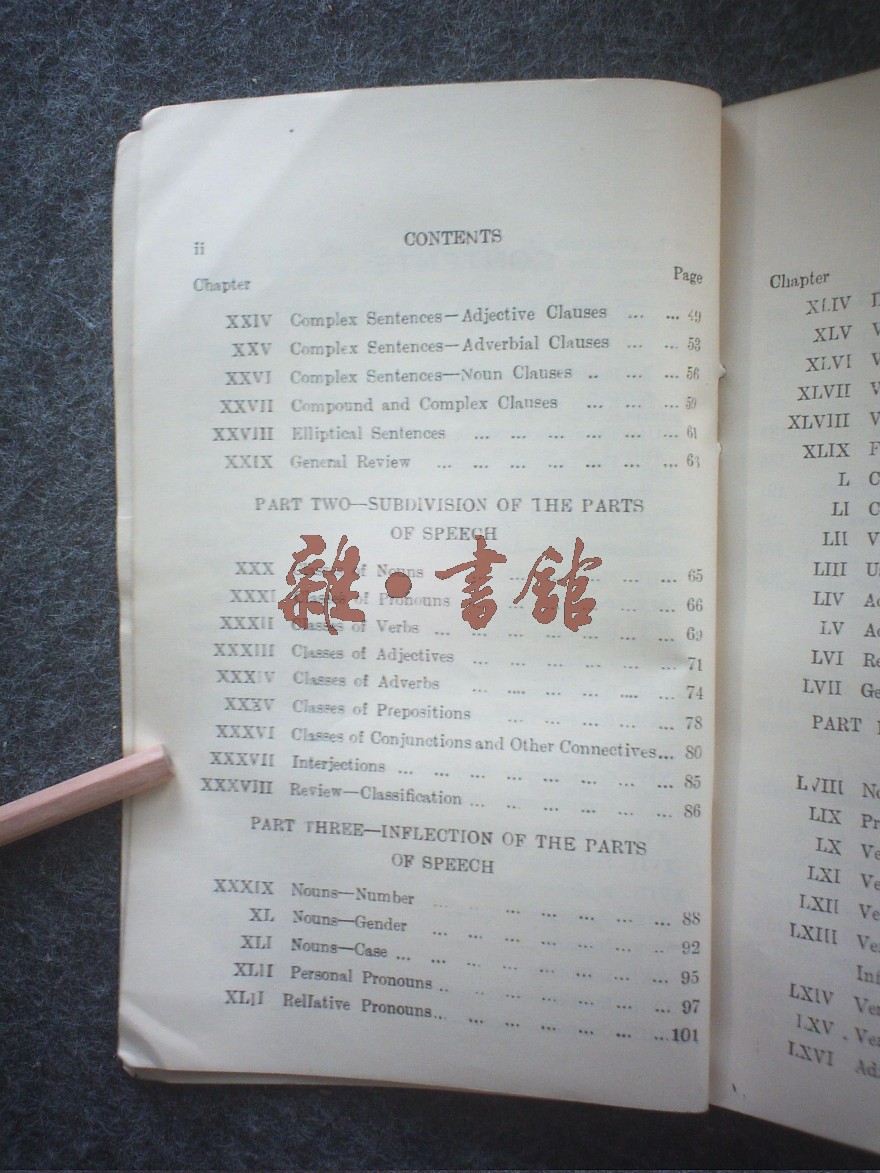 ii
CONTENTS
Chapter Page
XXIV Complex Sentences—Adjective Clauses ... ... 49
XXV Complex Sentences—Adverbial Clauses ... ... 53
XXVI Complex Sentences—Noun Clauses .. ... ... 56
XXVII Compound and Complex Clauses ... ... ... 59
XXVIII Elliptical Sentences ... ... ... ... ... ... 61
XXIX General Review ... ... ... ... ... ... ... 63
PART TWO—SUBDIVISION OF THE PARTS
OF SPEECH
XXX Classes of Nouns ... ... ... ... ... 65
XXXI Classes of Pronouns ... ... ... ... ... 66
XXXII Classes of Verbs ... ... ... ... ... ... ... 69
XXXIII Classes of Adjectives ... ... ... ... ... ... 71
XXXIV Classes of Adverbs ... .... ... ... .... ... 74
XXXV Classes of Prepositions ... ... ... ... ... 78
XXXVI Classes of Conjunctions and Other Connectives... 80
XXXVII Interjections ... ... ... ... ... ... ... ... 85
XXXVIII Review—Classification ... .. ... ... ... ... 86
PART THREE—INFLECTION OF THE PARTS
OF SPEECH
XXXIX Nouns—Number ... ... ... ... ... ... 88
XL Nouns—Gender ... ... ... ... ... .. 92
XLI Nouns—Case ... ... ... ... ... ... ... 95
XLII Personal Pronouns .. .. ... ... ... ... ... 97
XLIII Rellative Pronouns... ... ... ... ... ...101
雜·書館
Chapter
XLIV
XLV
XLVI
XLVII
XLVIII
XLIX
L
LI
LII
LIII
LIV
LV
LVI
LVII
PART
LVIII
LIX
LX
LXI
LXII
LXIII
LXIV
LXV
LXVI